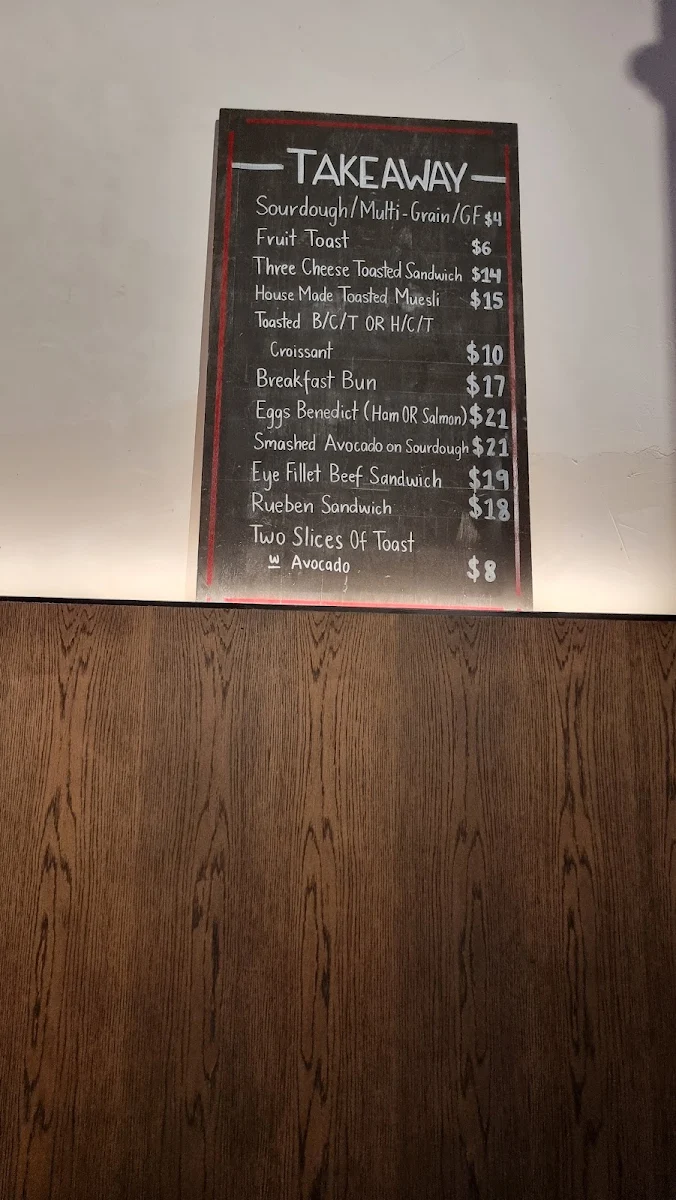 TAKEAWAY
Sourdough/Multi-Grain/GF $4
Fruit Toast $6
Three Cheese Toasted Sandwich $14
House Made Toasted Muesli $15
Toasted B/C/T OR H/C/T
Croissant $10
Breakfast Bun $17
Eggs Benedict (Ham OR Salmon) $21
Smashed Avocado on Sourdough $21
Eye Fillet Beef Sandwich $19
Rueben Sandwich $18
Two Slices Of Toast
w Avocado $8